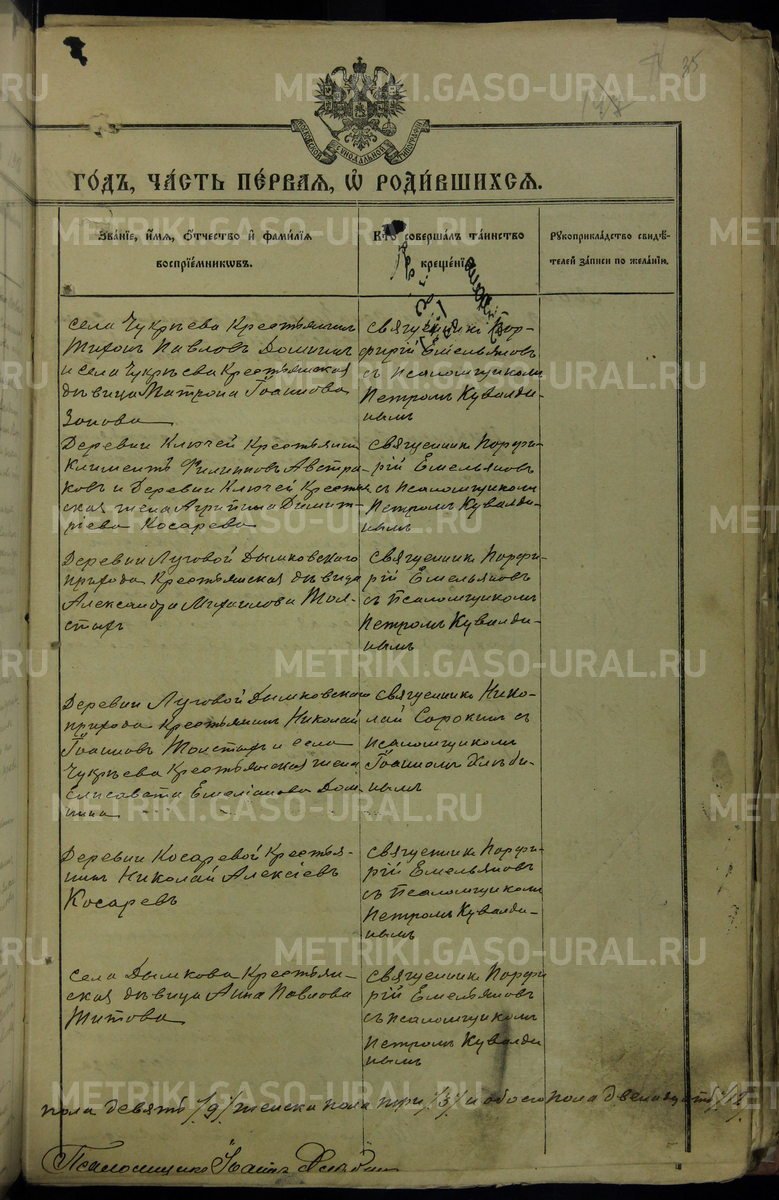 35
МОСКОВСКОЙ СѴНОДАЛЬНОЙ ТИПОГРАФІИ
ГО́ДЪ, ЧА́СТЬ ПЕ́РВАЯ, Ѽ РОДИ́ВШИХСЯ.
Зва́нїе, и́мѧ, ѻ҆́тчество и҆ фами́лїѧ
воспрїе́мникѡвъ.
Кто̀ соверша́лъ та́инство
креще́нїѧ
Рꙋкоприкла́дство свидѣ́-
телей за́писи по жела́нїю.
Села Чукрѣева Крестьянинъ
Тихонъ Павловъ Доминъ
и села Чукрѣева Крестьянская
дѣвица Матрона Іоаннова
Зонова
Священникъ Пор-
фирій Емельяновъ
съ Псаломщикомъ
Петромъ Кувалди-
нымъ
Деревни Ключей Крестьянинъ
Климентъ Филипповъ Австра-
ковъ и Деревни Ключей Крестьян
ская жена Агрипина Димит-
ріева Косарева
Священникъ Порфи-
рій Емельяновъ
съ Псаломщикомъ
Петромъ Кувалди-
нымъ
Деревни Луговой Дымковскаго
прихода Крестьянская дѣвица
Александра Михаилова Тол-
стыхъ
Священникъ Порфи-
рій Емельяновъ
съ Псаломщикомъ
Петромъ Кувалди-
нымъ
Деревни Луговой Дымковскаго
прихода Крестьянинъ Николай
Іоанновъ Толстыхъ и села
Чукрѣева Крестьянская жена
Елисавета Емеліанова Дом-
нина
Священникъ Нико-
лай Сорокинъ съ
псаломщикомъ
Іоанномъ Хлѣби-
нымъ
Деревни Косаревой Крестья-
нинъ Николай Алексіевъ
Косаревъ
Священникъ Порфи-
рій Емельяновъ
съ Псаломщикомъ
Петромъ Кувалди-
нымъ
Села Дымкова Крестьян-
ская дѣвица Анна Павлова
Титова
Священникъ Порфи
рій Емельяновъ
съ псаломщикомъ
Петромъ Кувалди
нымъ
пола девять /9/ женска пола три /3/ и обоего пола двенадцать /12/
Псаломщикъ Іоаннъ Хлѣбинъ
METRIKI.GASO-URAL.RU